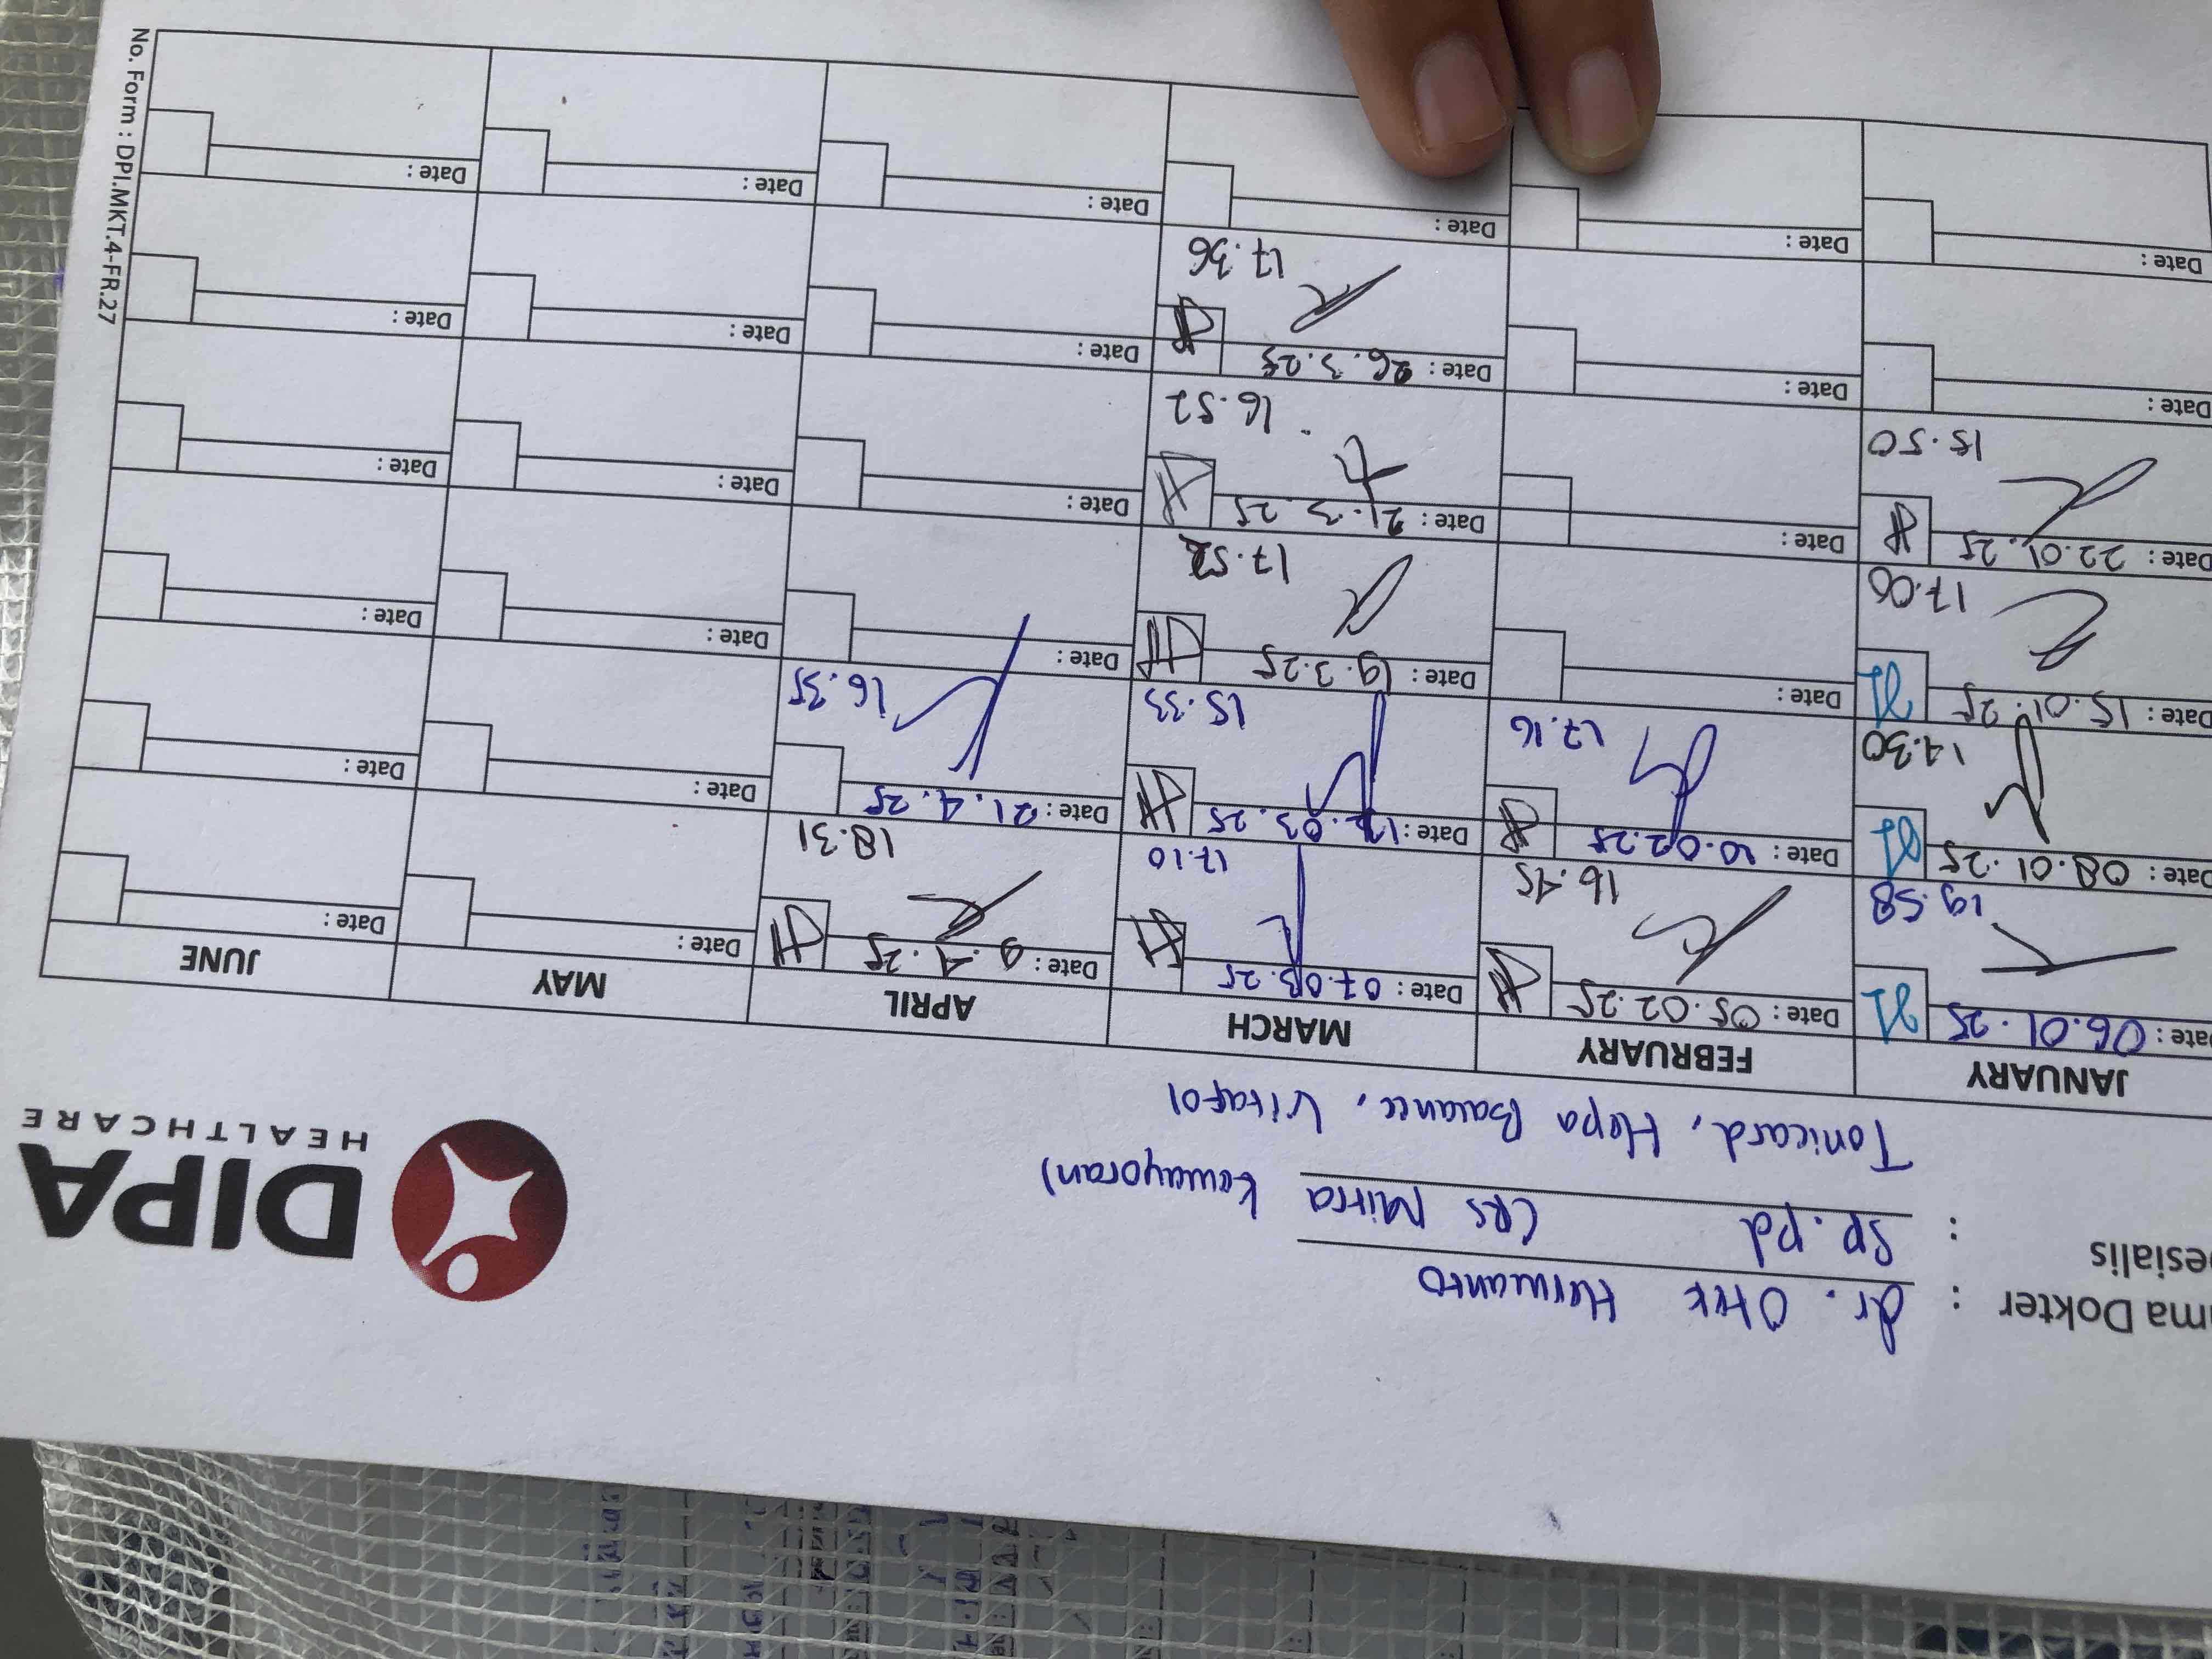 DIPA
HEALTHCARE
ma Dokter : dr. Otte Hermanto
esialis : Sp. Pd (RS Mitra Kemayoran)
Tonicard, Hepa Balance, Vitafol
JANUARY FEBRUARY MARCH APRIL MAY JUNE
ate : 06.01.25 Date : 05.02.25 Date : 07.03.25 Date : 9.4.25 Date : Date :
19.58 16.45 17.10 18.31
Date : 08.01.25 Date : 10.02.25 Date : 12.03.25 Date : 21.4.25 Date : Date :
14.30 17.16 15.33 16.35
Date : 15.01.25 Date : Date : 19.3.25 Date : Date : Date :
17.00 17.52
Date : 22.01.25 Date : Date : 21.3.25 Date : Date : Date :
15.50 16.52
Date : Date : Date : 26.3.25 Date : Date : Date :
17.36
Date : Date : Date : Date : Date : Date :
No. Form : DPI.MKT.4-FR.27